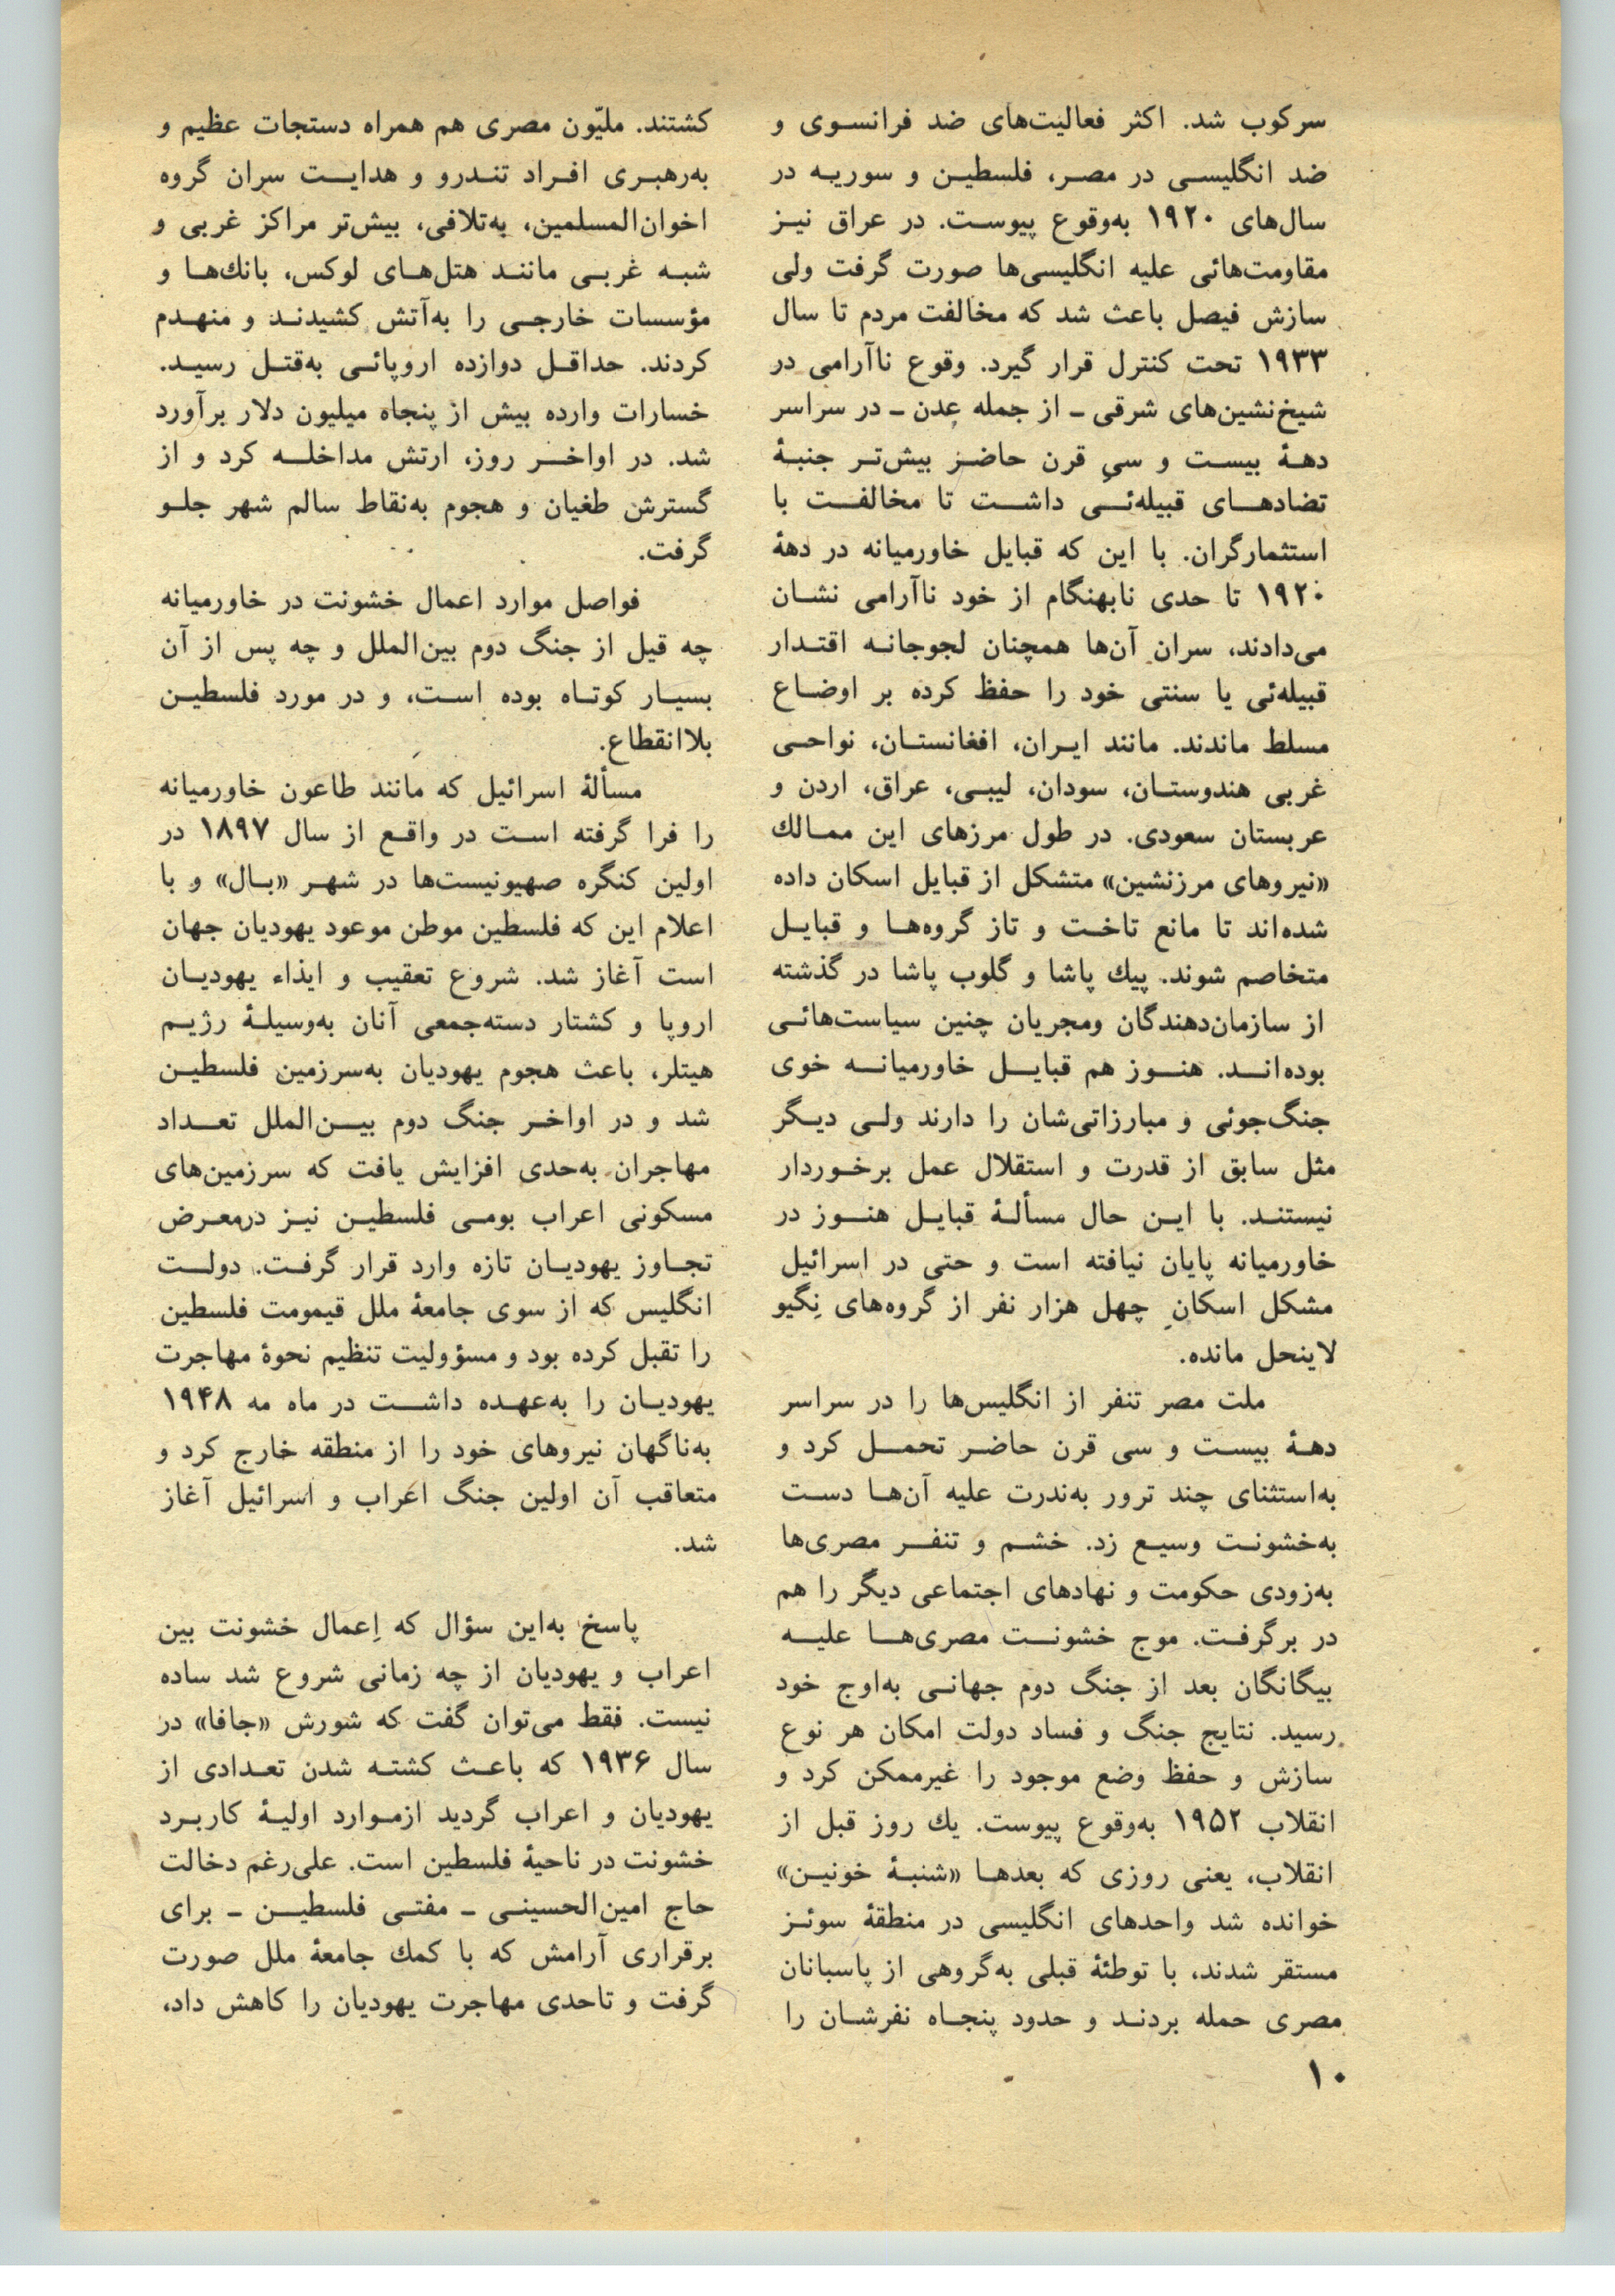 سرکوب شد. اکثر فعالیت‌های ضد فرانسوی و
ضد انگلیسی در مصر، فلسطین و سوریه در
سال‌های ۱۹۲۰ به‌وقوع پیوست. در عراق نیز
مقاومت‌هائی علیه انگلیسی‌ها صورت گرفت ولی
سازش فیصل باعث شد که مخالفت مردم تا سال
۱۹۳۳ تحت کنترل قرار گیرد. وقوع ناآرامی در
شیخ‌نشین‌های شرقی ـ از جمله عدن ـ در سراسر
دههٔ بیست و سیِ قرن حاضر بیش‌تر جنبهٔ
تضادهای قبیله‌ئی داشت تا مخالفت با
استثمارگران. با این که قبایل خاورمیانه در دههٔ
۱۹۲۰ تا حدی نابهنگام از خود ناآرامی نشان
می‌دادند، سران آن‌ها همچنان لجوجانه اقتدار
قبیله‌ئی یا سنتی خود را حفظ کرده بر اوضاع
مسلط ماندند. مانند ایران، افغانستان، نواحی
غربی هندوستان، سودان، لیبی، عراق، اردن و
عربستان سعودی. در طول مرزهای این ممالك
«نیروهای مرزنشین» متشکل از قبایل اسکان داده
شده‌اند تا مانع تاخت و تاز گروه‌ها و قبایل
متخاصم شوند. پیك پاشا و گلوب پاشا در گذشته
از سازمان‌دهندگان ومجریان چنین سیاست‌هائی
بوده‌اند. هنوز هم قبایل خاورمیانه خوی
جنگ‌جوئی و مبارزاتی‌شان را دارند ولی دیگر
مثل سابق از قدرت و استقلال عمل برخوردار
نیستند. با این حال مسألهٔ قبایل هنوز در
خاورمیانه پایان نیافته است و حتی در اسرائیل
مشکل اسکانِ چهل هزار نفر از گروه‌های نِگیو
لاینحل مانده.
ملت مصر تنفر از انگلیس‌ها را در سراسر
دههٔ بیست و سی قرن حاضر تحمل کرد و
به‌استثنای چند ترور به‌ندرت علیه آن‌ها دست
به‌خشونت وسیع زد. خشم و تنفر مصری‌ها
به‌زودی حکومت و نهادهای اجتماعی دیگر را هم
در برگرفت. موج خشونت مصری‌ها علیه
بیگانگان بعد از جنگ دوم جهانی به‌اوج خود
رسید. نتایج جنگ و فساد دولت امکان هر نوع
سازش و حفظ وضع موجود را غیرممکن کرد و
انقلاب ۱۹۵۲ به‌وقوع پیوست. یك روز قبل از
انقلاب، یعنی روزی که بعدها «شنبهٔ خونین»
خوانده شد واحدهای انگلیسی در منطقهٔ سوئز
مستقر شدند، با توطئهٔ قبلی به‌گروهی از پاسبانان
مصری حمله بردند و حدود پنجاه نفرشان را
۱۰
کشتند. ملیّون مصری هم همراه دستجات عظیم و
به‌رهبری افراد تندرو و هدایت سران گروه
اخوان‌المسلمین، به‌تلافی، بیش‌تر مراکز غربی و
شبه غربی مانند هتل‌های لوکس، بانك‌ها و
مؤسسات خارجی را به‌آتش کشیدند و منهدم
کردند. حداقل دوازده اروپائی به‌قتل رسید.
خسارات وارده بیش از پنجاه میلیون دلار برآورد
شد. در اواخر روز، ارتش مداخله کرد و از
گسترش طغیان و هجوم به‌نقاط سالم شهر جلو
گرفت.
فواصل موارد اعمال خشونت در خاورمیانه
چه قیل از جنگ دوم بین‌الملل و چه پس از آن
بسیار کوتاه بوده است، و در مورد فلسطین
بلاانقطاع.
مسألهٔ اسرائیل که مانند طاعون خاورمیانه
را فرا گرفته است در واقع از سال ۱۸۹۷ در
اولین کنگره صهیونیست‌ها در شهر «بال» و با
اعلام این که فلسطین موطن موعود یهودیان جهان
است آغاز شد. شروع تعقیب و ایذاء یهودیان
اروپا و کشتار دسته‌جمعی آنان به‌وسیلهٔ رژیم
هیتلر، باعث هجوم یهودیان به‌سرزمین فلسطین
شد و در اواخر جنگ دوم بین‌الملل تعداد
مهاجران به‌حدی افزایش یافت که سرزمین‌های
مسکونی اعراب بومی فلسطین نیز درمعرض
تجاوز یهودیان تازه وارد قرار گرفت. دولت
انگلیس که از سوی جامعهٔ ملل قیمومت فلسطین
را تقبل کرده بود و مسؤولیت تنظیم نحوهٔ مهاجرت
یهودیان را به‌عهده داشت در ماه مه ۱۹۴۸
به‌ناگهان نیروهای خود را از منطقه خارج کرد و
متعاقب آن اولین جنگ اعراب و اسرائیل آغاز
شد.
پاسخ به‌این سؤال که اِعمال خشونت بین
اعراب و یهودیان از چه زمانی شروع شد ساده
نیست. فقط می‌توان گفت که شورش «جافا» در
سال ۱۹۳۶ که باعث کشته شدن تعدادی از
یهودیان و اعراب گردید ازموارد اولیهٔ کاربرد
خشونت در ناحیهٔ فلسطین است. علی‌رغم دخالت
حاج امین‌الحسینی ـ مفتی فلسطین ـ برای
برقراری آرامش که با کمك جامعهٔ ملل صورت
گرفت و تاحدی مهاجرت یهودیان را کاهش داد،